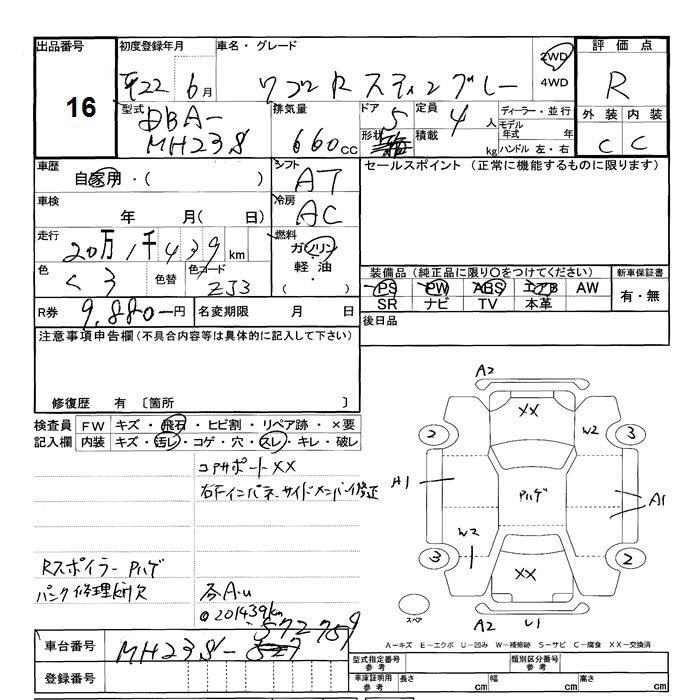 出品番号 初度登録年月 車名・グレード 評価点
16
平22 6月 ワゴンR スティングレー 2WD 4WD R
型式 DBA-MH23S 排気量 660cc ドア 5 形状 定員 4人 積載 kg ディーラー・並行 モデル年式 年 ハンドル 左・右 外装 内装
C C
車歴 自家用・( ) シフト AT セールスポイント (正常に機能するものに限ります)
車検 年 月( 日) 冷房 AC
走行 20万1千439km 燃料 ガソリン・軽油・( )
色 クロ 色替 色コード ZJ3 装備品(純正品に限り○をつけてください) 新車保証書
PS PW ABS エアB AW 有・無
SR ナビ TV 本革
R券 9,880-円 名変期限 月 日 後日品
注意事項申告欄(不具合内容等は具体的に記入して下さい)
修復歴 有 〔箇所 〕
検査員 FW キズ・飛石・ヒビ割・リペア跡・×要
記入欄 内装 キズ・汚レ・コゲ・穴・スレ・キレ・破レ
コアサポートXX
右Fインパネ、サイドメンバー修正
Rスポイラー Pハゲ
パンク修理Kit欠
◎201439km
A2
XX
2 W2 3
A1 Pハゲ A1
W2
3 XX 2
スペア A2 U1
A-キズ E-エクボ U-凹み W-補修跡 S-サビ C-腐食 XX-交換済
車台番号 MH23S-572759
登録番号
型式指定番号 参考 類別区分番号 参考
車庫証明用 参考 長さ cm 幅 cm 高さ cm